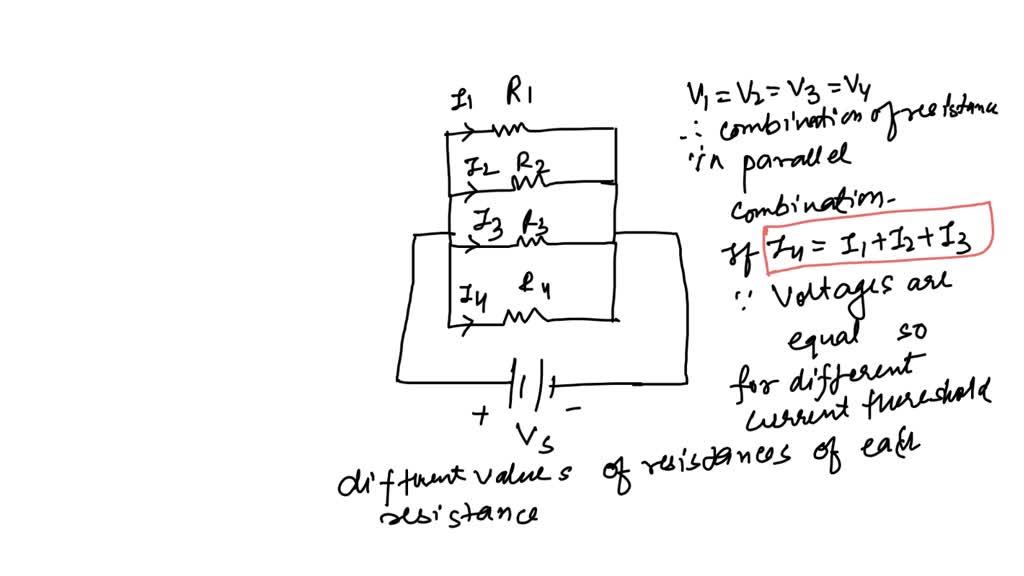 I1 R1
I2 R2
I3 R3
I4 R4
+ -
Vs
V1 = V2 = V3 = V4
∴ combination of resistance
∵ in parallel
combination.
If I4 = I1+I2+I3
∵ Voltages are
equal so
for different
current threshold
different values of resistances of each
resistance